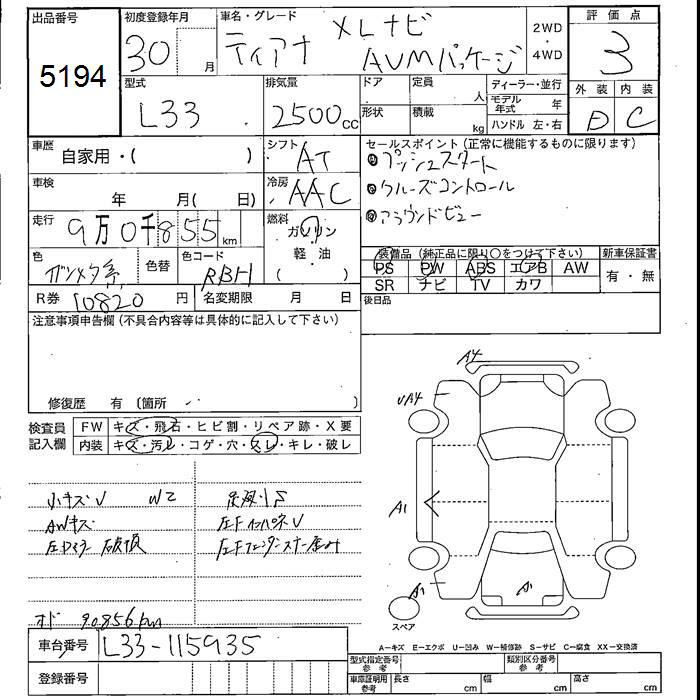 出品番号 初度登録年月 車名・グレード 評価点
5194 30 月 ティアナ XLナビ AVMパッケージ 2WD・4WD 3
型式 排気量 ドア 定員 人 ディーラー・並行 外装 内装
L33 2500cc 形状 積載 kg モデル年式 年 D C
ハンドル 左・右
車歴 自家用・( ) シフト AT セールスポイント(正常に機能するものに限ります)
プッシュスタート
車検 年 月(日) 冷房 AAC クルーズコントロール
走行 9万0千855km 燃料 ガソリン 軽油 ( ) アラウンドビュー
色 ガンメタ系 色替 色コード RBH
装備品(純正品に限り○をつけて下さい) 新車保証書
PS PW ABS エアB AW 有・無
SR ナビ TV カワ
R券 10820円 名変期限 月 日 後日品
注意事項申告欄(不具合内容等は具体的に記入して下さい)
修復歴 有(箇所 )
検査員記入欄 FW キズ・飛石・ヒビ割・リペア跡・X要
内装 キズ・汚レ・コゲ・穴・スレ・キレ・破レ
小キズU W2
AWキズ 左Fインパネ U
左ドアミラー破損 左Fフェンダーステー歪み
オド 90856km
A4
UA4
A1
A1
A1
スペア
A-キズ E-エクボ U-凹み W-補修跡 S-サビ C-腐食 XX-交換済
車台番号 L33-115935
登録番号
型式指定番号参考 類別区分番号参考
車庫証明用参考 長さ cm 幅 cm 高さ cm